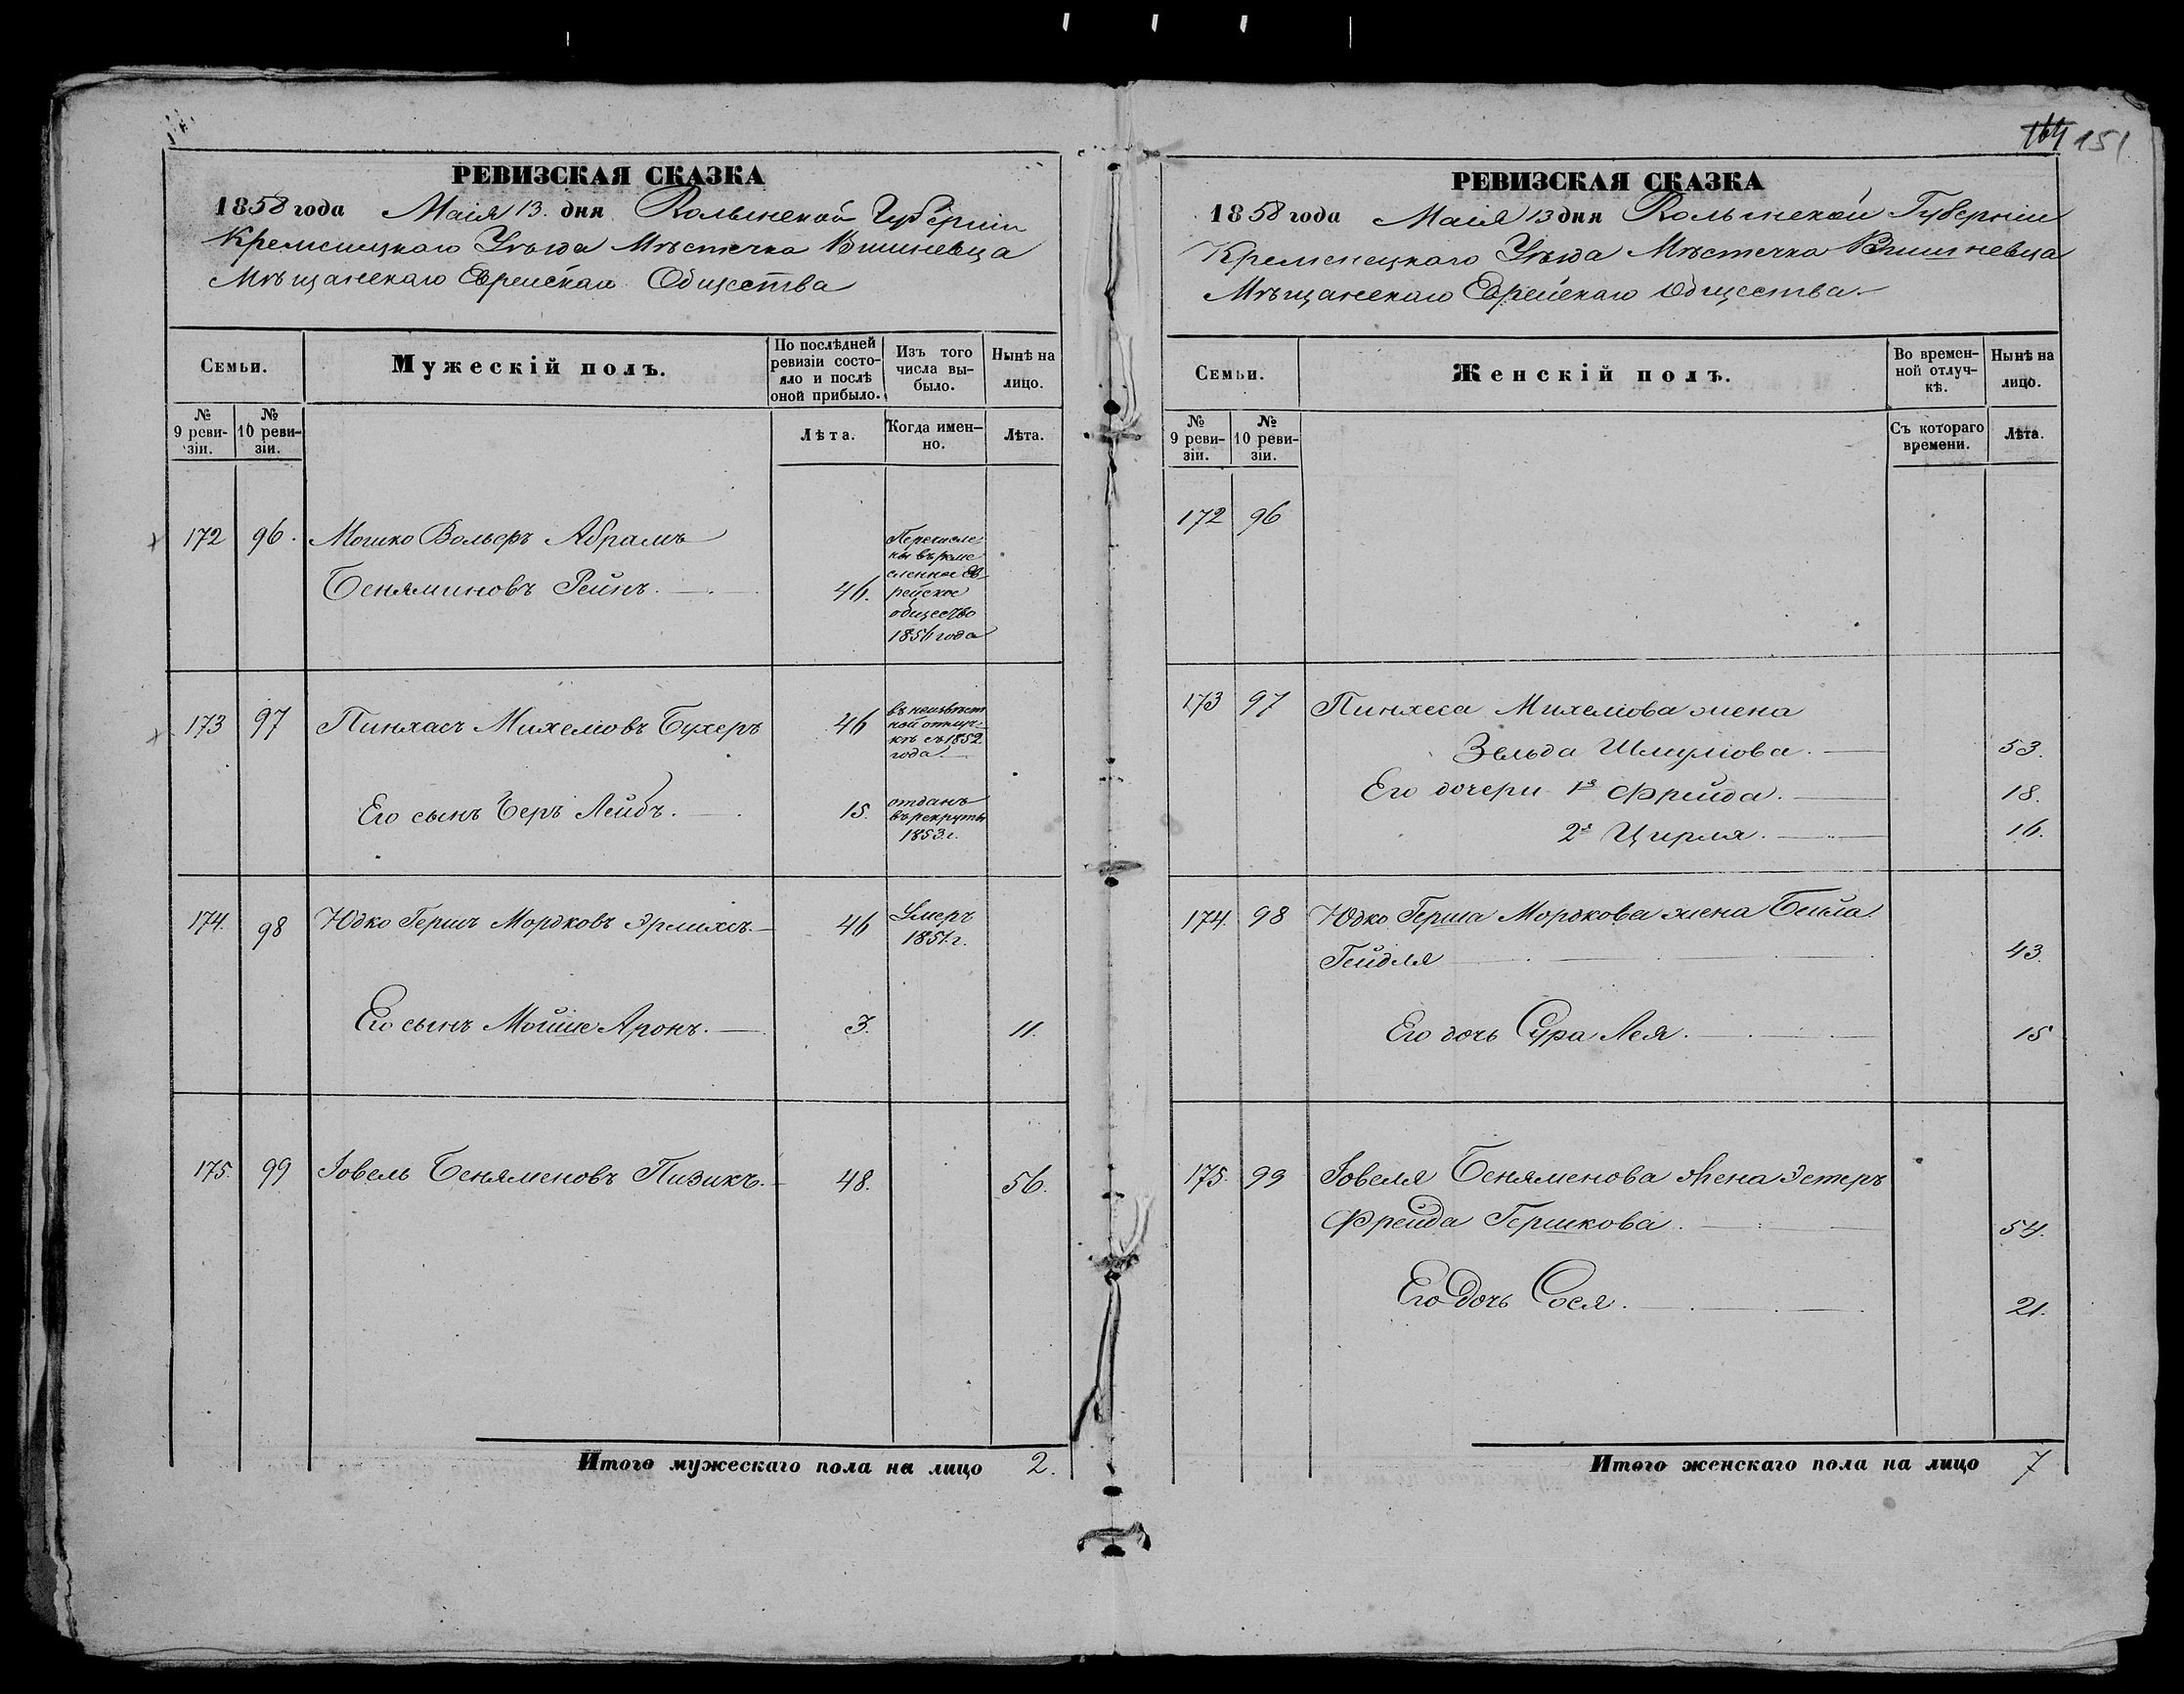 164 151
РЕВИЗСКАЯ СКАЗКА
1858 года Маія 13. дня Волынской Губерніи
Кременецкаго Уѣзда Мѣстечка Вишневца
Мѣщанскаго Еврейскаго Общества
Семьи.
Мужескій полъ.
По послѣдней ревизіи состо-
яло и послѣ оной прибыло.
Изъ того числа вы-
было.
Нынѣ на лицо.
№ 9 реви-
зіи.
№ 10 реви-
зіи.
Лѣта.
Когда имен-
но.
Лѣта.
172 96. Мошко Вольфъ Абрамъ
Беняминовъ Рейнъ. 46.
Перечисле
ны въ реме
сленное Ев
рейское
общество
1856 года
173 97 Пинхасъ Михелiовъ Бухеръ 46
въ неизвѣст
ной отлуч-
кѣ съ 1852
года.
Его сынъ Беръ Лейбъ. 15.
отданъ
въ рекруты
1853 г.
174. 98 Юдко Гершъ Мордковъ Эрлихъ. 46
Умеръ
1851 г.
Его сынъ Мойше Аронъ. 3. 11.
175. 99 Іовель Беняменовъ Пизикъ. 48. 56.
Итого мужескаго пола на лицо 2.
РЕВИЗСКАЯ СКАЗКА
1858 года Маія 13 дня Волынской Губерніи
Кременецкаго Уѣзда Мѣстечка Вишневца
Мѣщанскаго Еврейскаго Общества
Семьи.
Женскій полъ.
Во времен-
ной отлуч-
кѣ.
Нынѣ на лицо.
№ 9 реви-
зіи.
№ 10 реви-
зіи.
Съ котораго времени.
Лѣта.
172 96
173 97 Пинхеса Михелiова жена
Зельда Шмулiова. 53.
Его дочери 1я Фрейда. 18.
2я Цирля. 16.
174. 98 Юдко Герша Мордкова жена Бейла
Гейдля 43.
Его дочь Сура Лея. 15
175. 99 Іовеля Беняменова жена Эстеръ
Фрейда Гершкова. 54.
Его дочь Сося. 21.
Итого женскаго пола на лицо 7